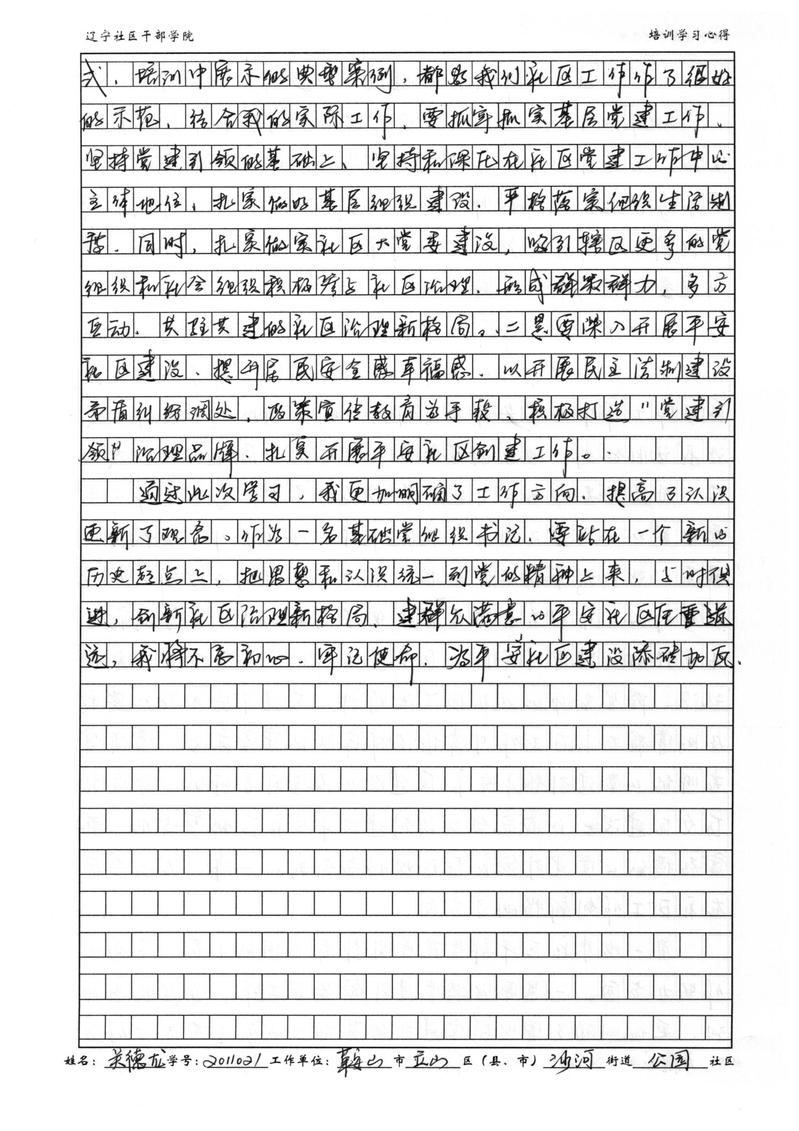 辽宁社区干部学院 培训学习心得
式,培训中展示的典型案例,都给我们社区工作作了很好
的示范,结合我的实际工作,要抓牢抓实基层党建工作,
坚持党建引领的基础上、坚持和保证在社区党建工作中心
主体地位,扎实做好基层组织建设,严格落实组织生活制
度,同时,扎实做实社区大党委建设,吸引辖区更多的党
组织和社会组织积极参与社区治理,形成群策群力,多方
互动,共驻共建的社区治理新格局。二是要深入开展平安
社区建设,提升居民安全感幸福感,以开展民主法制建设
矛盾纠纷调处,政策宣传教育为手段,积极打造"党建引
领"治理品牌,扎实开展平安社区创建工作。
通过此次学习,我更加明确了工作方向,提高了认识
更新了观念。作为一名基础党组织书记,要站在一个新的
历史起点上,把思想和认识统一到党的精神上来,与时俱
进,创新社区治理新格局,建群众满意的平安社区任重道
远,我将不忘初心,牢记使命,为平安社区建设添砖加瓦.
姓名:关德龙 学号:2011021 工作单位:鞍山市立山区(县、市)沙河街道公园社区